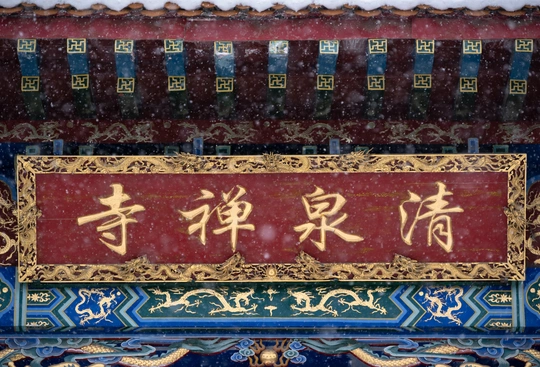 清泉禅寺